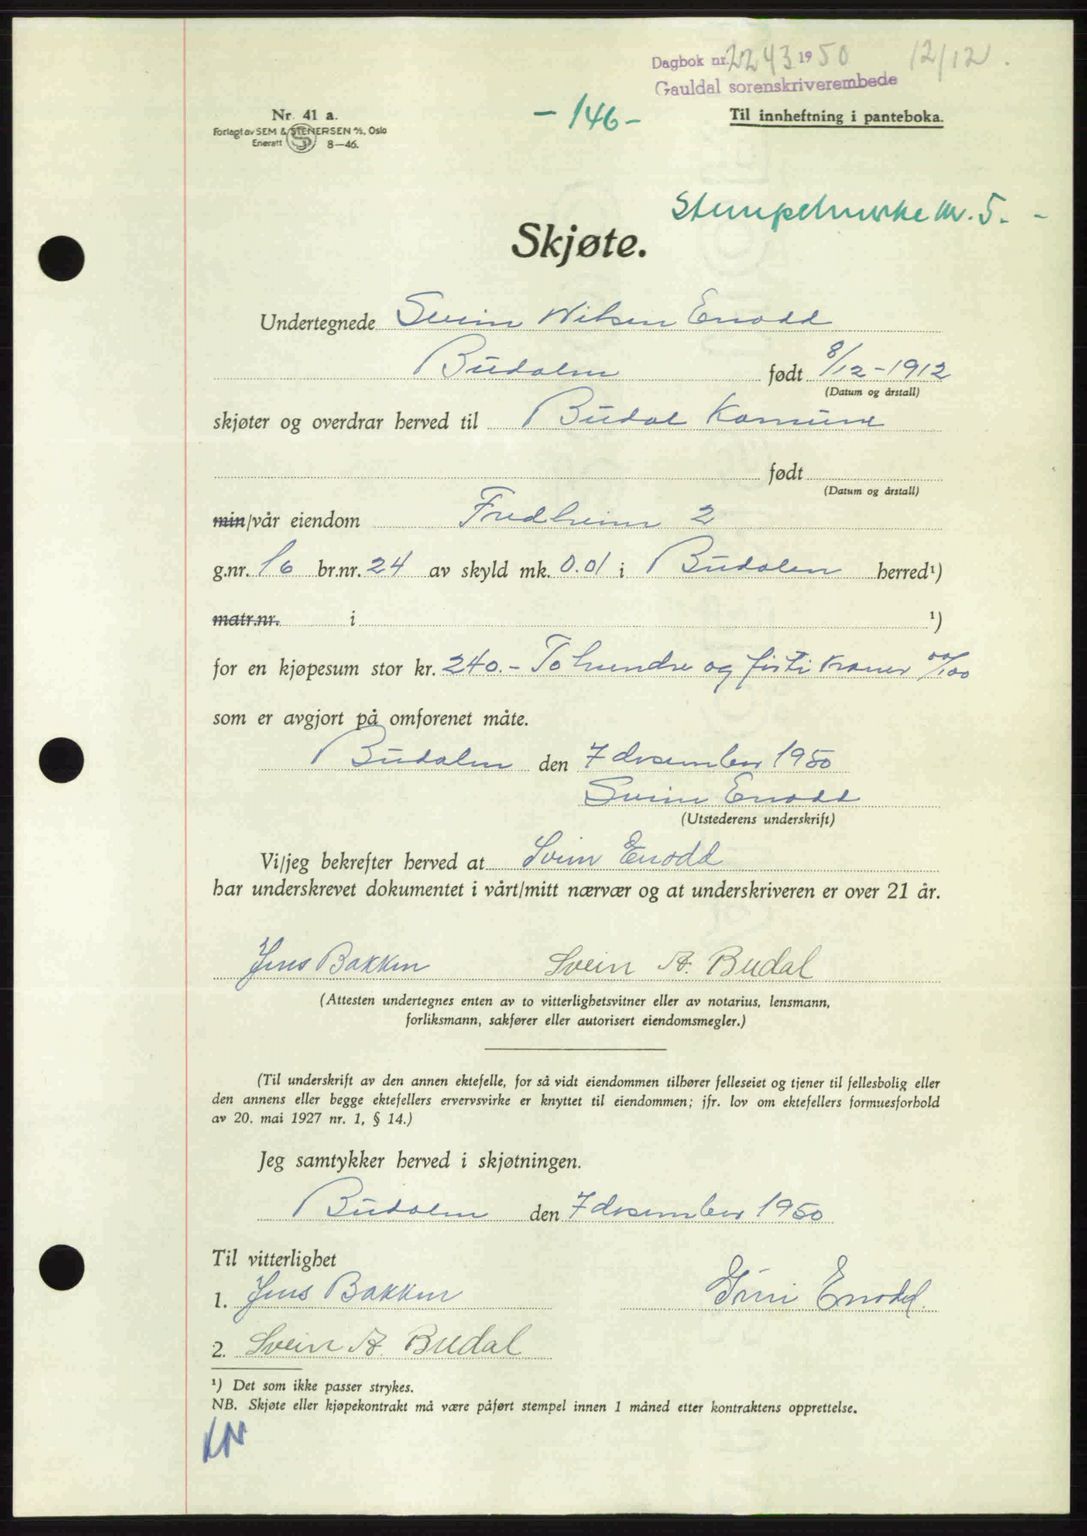 Dagbok nr. 2243 1950 12/12.
Gauldal sorenskriverembede
Nr. 41 a.
Forlagt av SEM & STENERSEN A/S, Oslo
Enerett 8—46.
- 146 -
Til innheftning i panteboka.
Stempelmerke kr. 5. -
Skjøte.
Undertegnede Svein Nilsen Enodd
Budalen født 8/12-1912
(Datum og årstall)
skjøter og overdrar herved til Budal Komune
født
(Datum og årstall)
min/vår eiendom Fredheim 2
g.nr. 16 br.nr. 24 av skyld mk. 0.01 i Budalen herred¹)
matr.nr. i ¹)
for en kjøpesum stor kr. 240.- To hundre og førti kroner 00/100
som er avgjort på omforenet måte.
Budalen den 7 desember 1950
Svein Enodd
(Utstederens underskrift)
Vi/jeg bekrefter herved at Svein Enodd
har underskrevet dokumentet i vårt/mitt nærvær og at underskriveren er over 21 år.
Jens Bakken Svein A. Budal
(Attesten undertegnes enten av to vitterlighetsvitner eller av notarius, lensmann,
forliksmann, sakfører eller autorisert eiendomsmegler.)
(Til underskrift av den annen ektefelle, for så vidt eiendommen tilhører felleseiet og tjener til fellesbolig eller
den annens eller begge ektefellers ervervsvirke er knyttet til eiendommen; jfr. lov om ektefellers formuesforhold
av 20. mai 1927 nr. 1, § 14.)
Jeg samtykker herved i skjøtningen.
Budalen den 7 desember 1950
Til vitterlighet
1. Jens Bakken Guri Enodd.
2. Svein A. Budal
¹) Det som ikke passer strykes.
NB. Skjøte eller kjøpekontrakt må være påført stempel innen 1 måned etter kontraktens opprettelse.